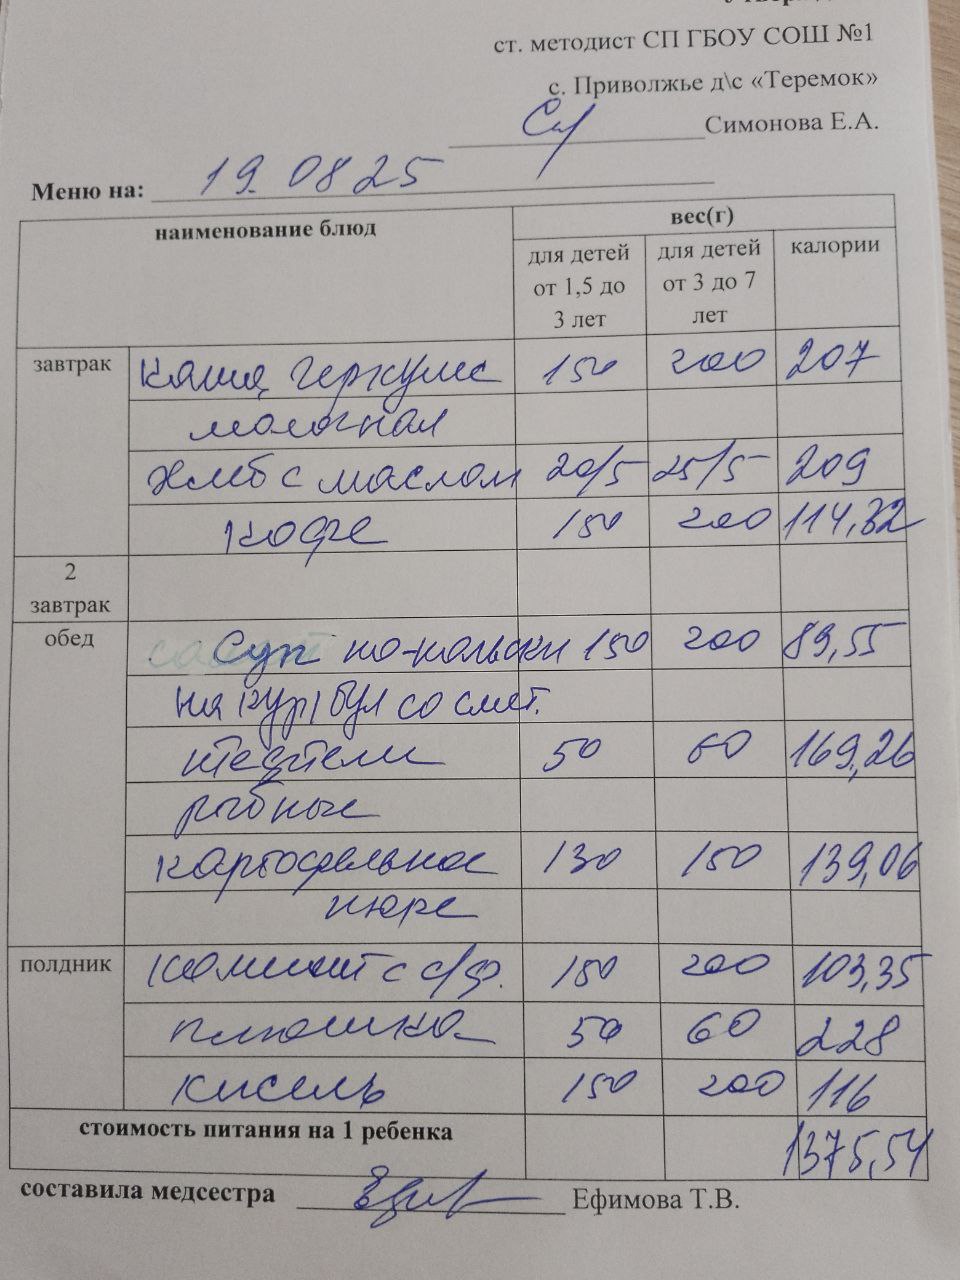 ст. методист СП ГБОУ СОШ №1
с. Приволжье д\с «Теремок»
Симонова Е.А.
Меню на: 19.08 25
наименование блюд
вес(г)
для детей от 1,5 до 3 лет
для детей от 3 до 7 лет
калории
завтрак Каша геркулес 150 200 207
молочная
Хлеб с маслом 20/5 25/5 209
кофе 150 200 114,32
2 завтрак
обед Суп по-польски 150 200 89,55
на кур бул со смет.
тефтели 50 60 169,26
рыбные
картофельное 130 150 139,06
пюре
полдник компот с с/ф. 150 200 103,35
плюшка 50 60 228
кисель 150 200 116
стоимость питания на 1 ребенка 1375,54
составила медсестра Ефимова Т.В.